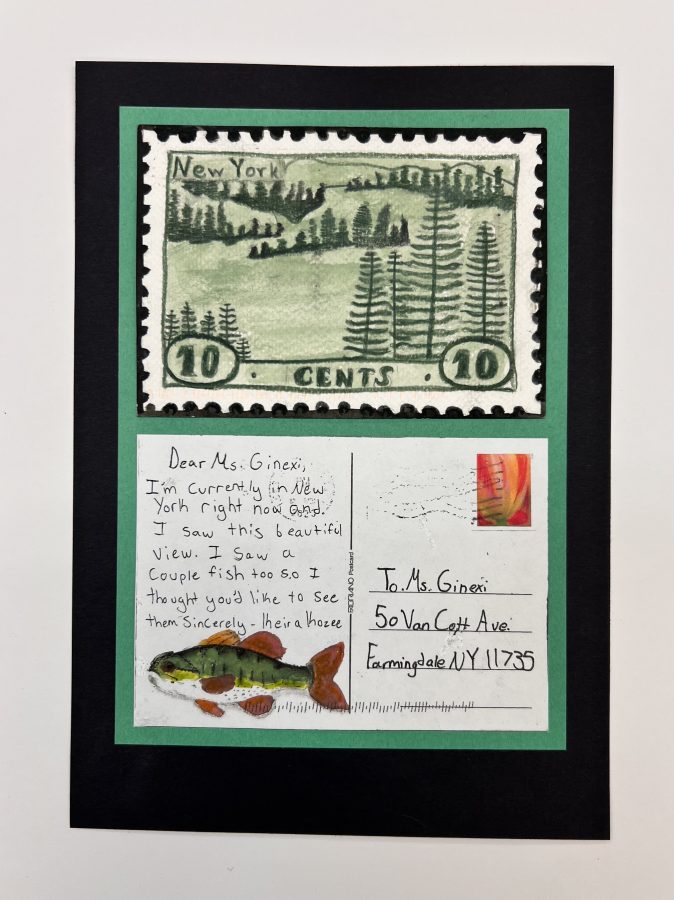 New York
10 . CENTS . 10
Dear Ms. Ginexi,
I'm currently in New
York right now and.
I saw this beautiful
view. I saw a
couple fish too so I
thought you'd like to see
them Sincerely - Keira Kozee
Postcard
To. Ms. Ginexi
50 Van Cott Ave.
Farmingdale NY 11735